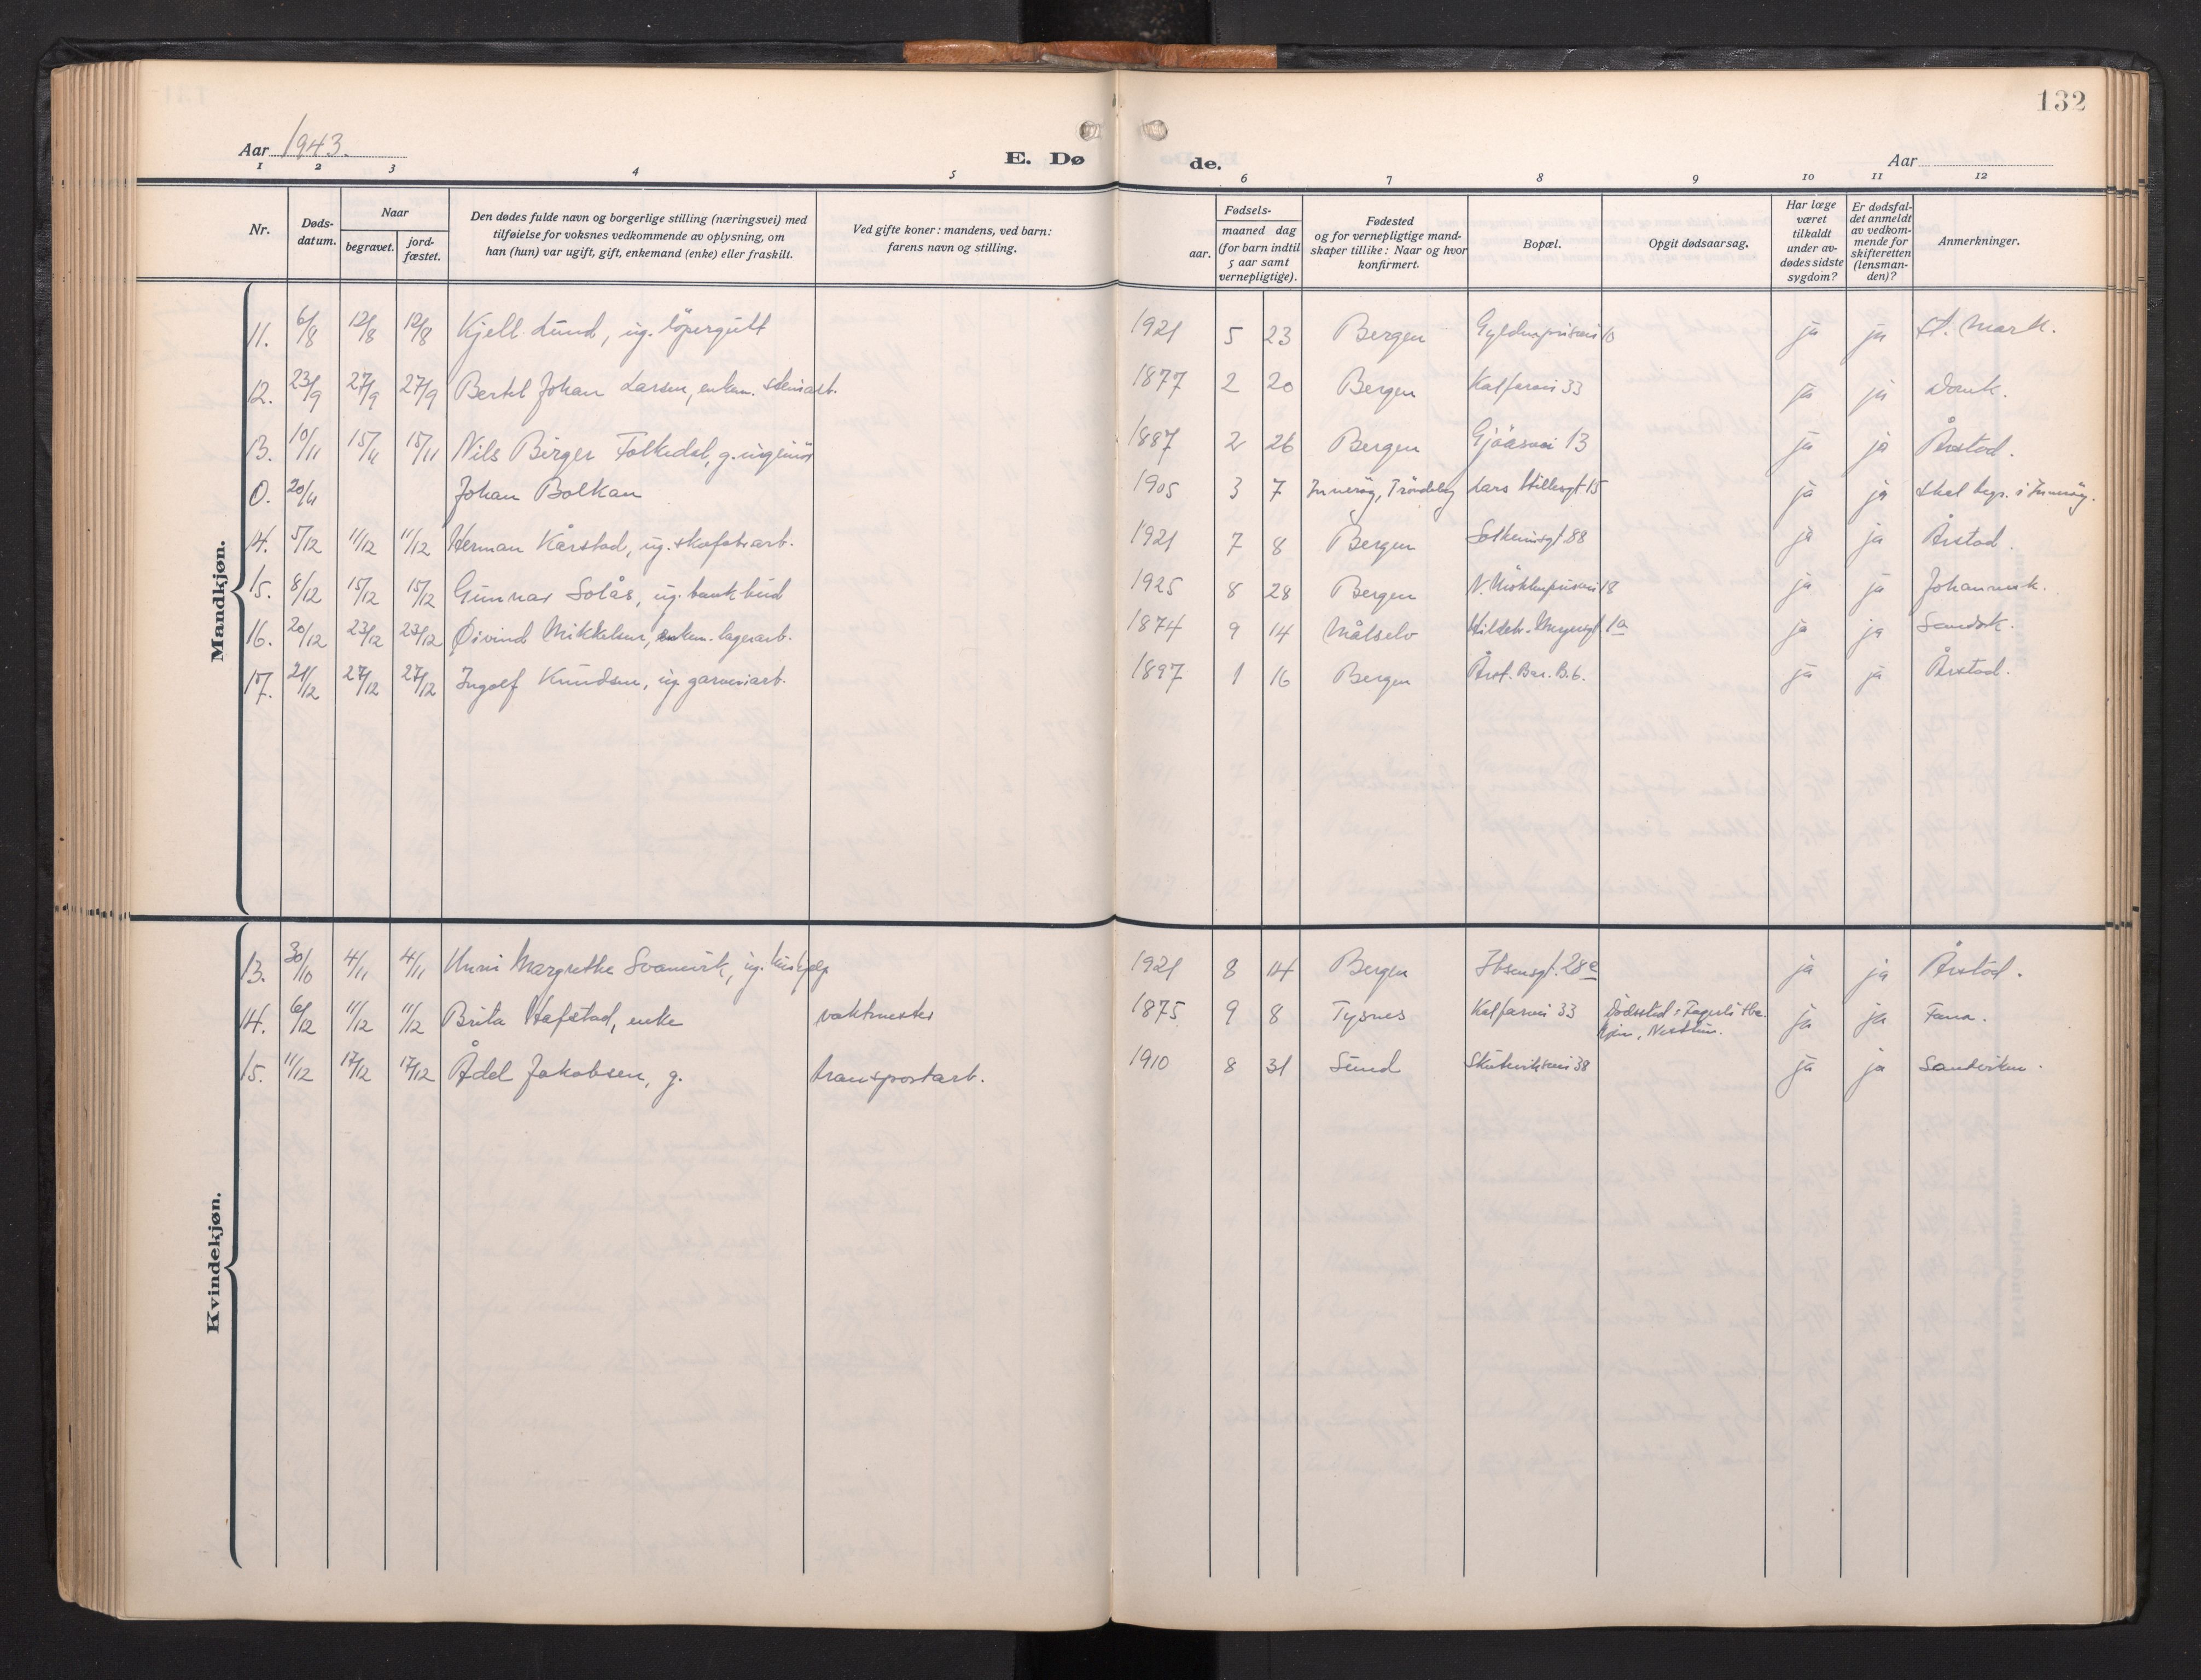 132
Aar 1943.
E. Dø de.
Aar
1 2 3 4 5 6 7 8 9 10 11 12
Nr.
Døds-
datum.
Naar
begravet.
jord-
fæstet.
Den dødes fulde navn og borgerlige stilling (næringsvei) med
tilføielse for voksnes vedkommende av oplysning, om
han (hun) var ugift, gift, enkemand (enke) eller fraskilt.
Ved gifte koner: mandens, ved barn:
farens navn og stilling.
aar.
Fødsels-
maaned dag
(for barn indtil
5 aar samt
vernepligtige).
Fødested
og for vernepligtige mand-
skaper tillike: Naar og hvor
konfirmert.
Bopæl.
Opgit dødsaarsag.
Har læge
været
tilkaldt
under av-
dødes sidste
sygdom?
Er dødsfal-
det anmeldt
av vedkom-
mende for
skifteretten
(lensman-
den)?
Anmerkninger.
Mandkjøn.
11. 6/8 12/8 12/8 Kjell Lund, ug. løpergutt 1921 5 23 Bergen 10 ja ja St. Mark.
12. 23/9 27/9 27/9 Bertel Johan Larsen, enkem. 1877 2 20 Bergen Kalfarvei 33 ja ja Domk.
13. 10/11 15/11 15/11 Nils Birger Folkedal, g. ingeniør 1887 2 26 Bergen Gjøasvei 13 ja ja Årstad.
0. 20/11 Johan Bolkan 1905 3 7 Inderøy, Trøndelag Lars Hillesgt 15 ja ja skal begr. i Inderøy.
14. 5/12 11/12 11/12 Herman Kårstad, ug. 1921 7 8 Bergen Solheimsgt 88 ja ja Årstad.
15. 8/12 15/12 15/12 Gunnar Solås, ug. bankbud 1925 8 28 Bergen 18 ja ja Johannesk.
16. 20/12 23/12 23/12 Øivind Mikkelsen, enkem. lagerarb. 1874 9 14 Målselv 1a ja ja Sandvk.
17. 21/12 27/12 27/12 Ingolf Knudsen, ug. garveriarb. 1897 1 16 Bergen Årst. Bar. B. 6. ja ja Årstad.
Kvindekjøn.
13. 30/10 4/11 4/11 Unni Margrethe Svanevik, ug. hushjelp 1921 8 14 Bergen Ibsensgt. 28e ja ja Årstad.
14. 6/12 11/12 11/12 Brita Hafstad, enke vaktmester 1875 9 8 Tysnes Kalfarvei 33 Dødssted: Fagerli ja ja Fana.
Nesttun.
15. 11/12 17/12 17/12 Ådel Jakobsen, g. transportarb. 1910 8 31 Sund Skuteviksvei 38 ja ja Sandviken.